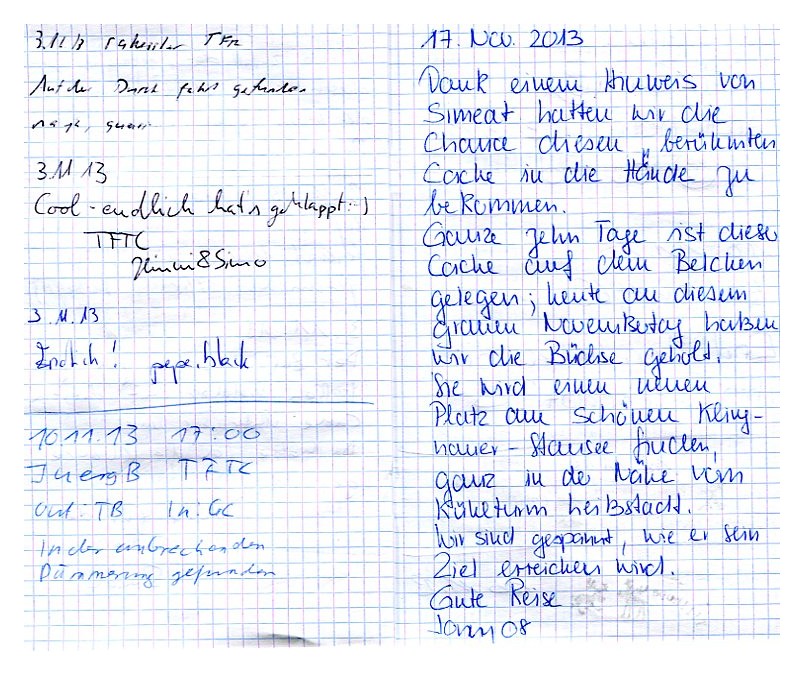 3.11.13
Auf der Durchfahrt gefunden
3.11.13
Cool - endlich hat's geklappt :-)
TFTC
& Simo
3.11.13
Endlich! pepe.black
10.11.13 17:00
JuergB TFTC
Out: TB In: GC
In der einbrechenden
Dämmerung gefunden
17. Nov. 2013
Dank einem Hinweis von
Simeat hatten wir die
Chance diesen berühmten
Cache in die Hände zu
bekommen.
Ganze zehn Tage ist dieser
Cache auf dem Belchen
gelegen; heute an diesem
grauen Novembertag haben
wir die Büchse geholt.
Sie wird einen neuen
Platz am schönen Kling-
nauer-Stausee finden,
ganz in der Nähe vom
Kühlturm Leibstadt.
Wir sind gespannt, wie er sein
Ziel erreichen wird.
Gute Reise